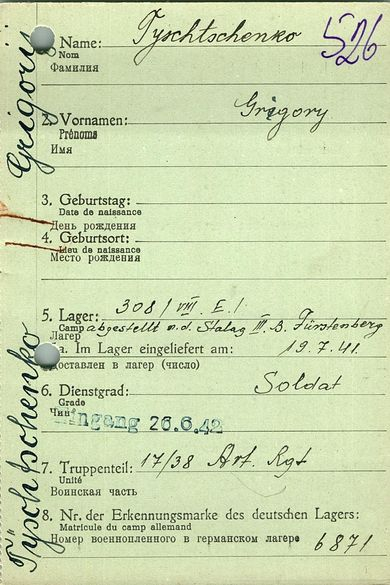 526
Name: Tyschtschenko
Nom
Фамилия
2. Vornamen: Grigory
Prénoms
Имя
3. Geburtstag:
Date de naissance
День рождения
4. Geburtsort:
Lieu de naissance
Место рождения
5. Lager: 308 / VIII. E. /.
Camp abgestellt n. d. Stalag III. B. Fürstenberg
Лагерь
a. Im Lager eingeliefert am: 19. 7. 41.
Доставлен в лагер (число)
6. Dienstgrad: Soldat
Grade
Чин
Eingang 26.6.42
7. Truppenteil: 17/38 Art. Rgt
Unité
Воинская часть
8. Nr. der Erkennungsmarke des deutschen Lagers:
Matricule du camp allemand
Номер военнопленного в германском лагере 6871
Tyschtschenko Grigory